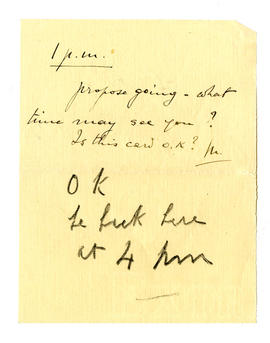 1 p.m.
propose going - what
time may see you?
Is this card O.K? M.
OK
be back here
at 4 pm